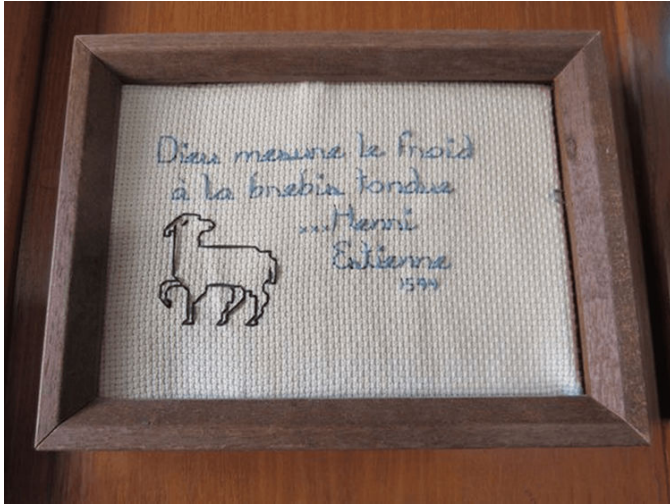 Dieu mesure le froid
à la brebis tondue
...Henri
Estienne
1594